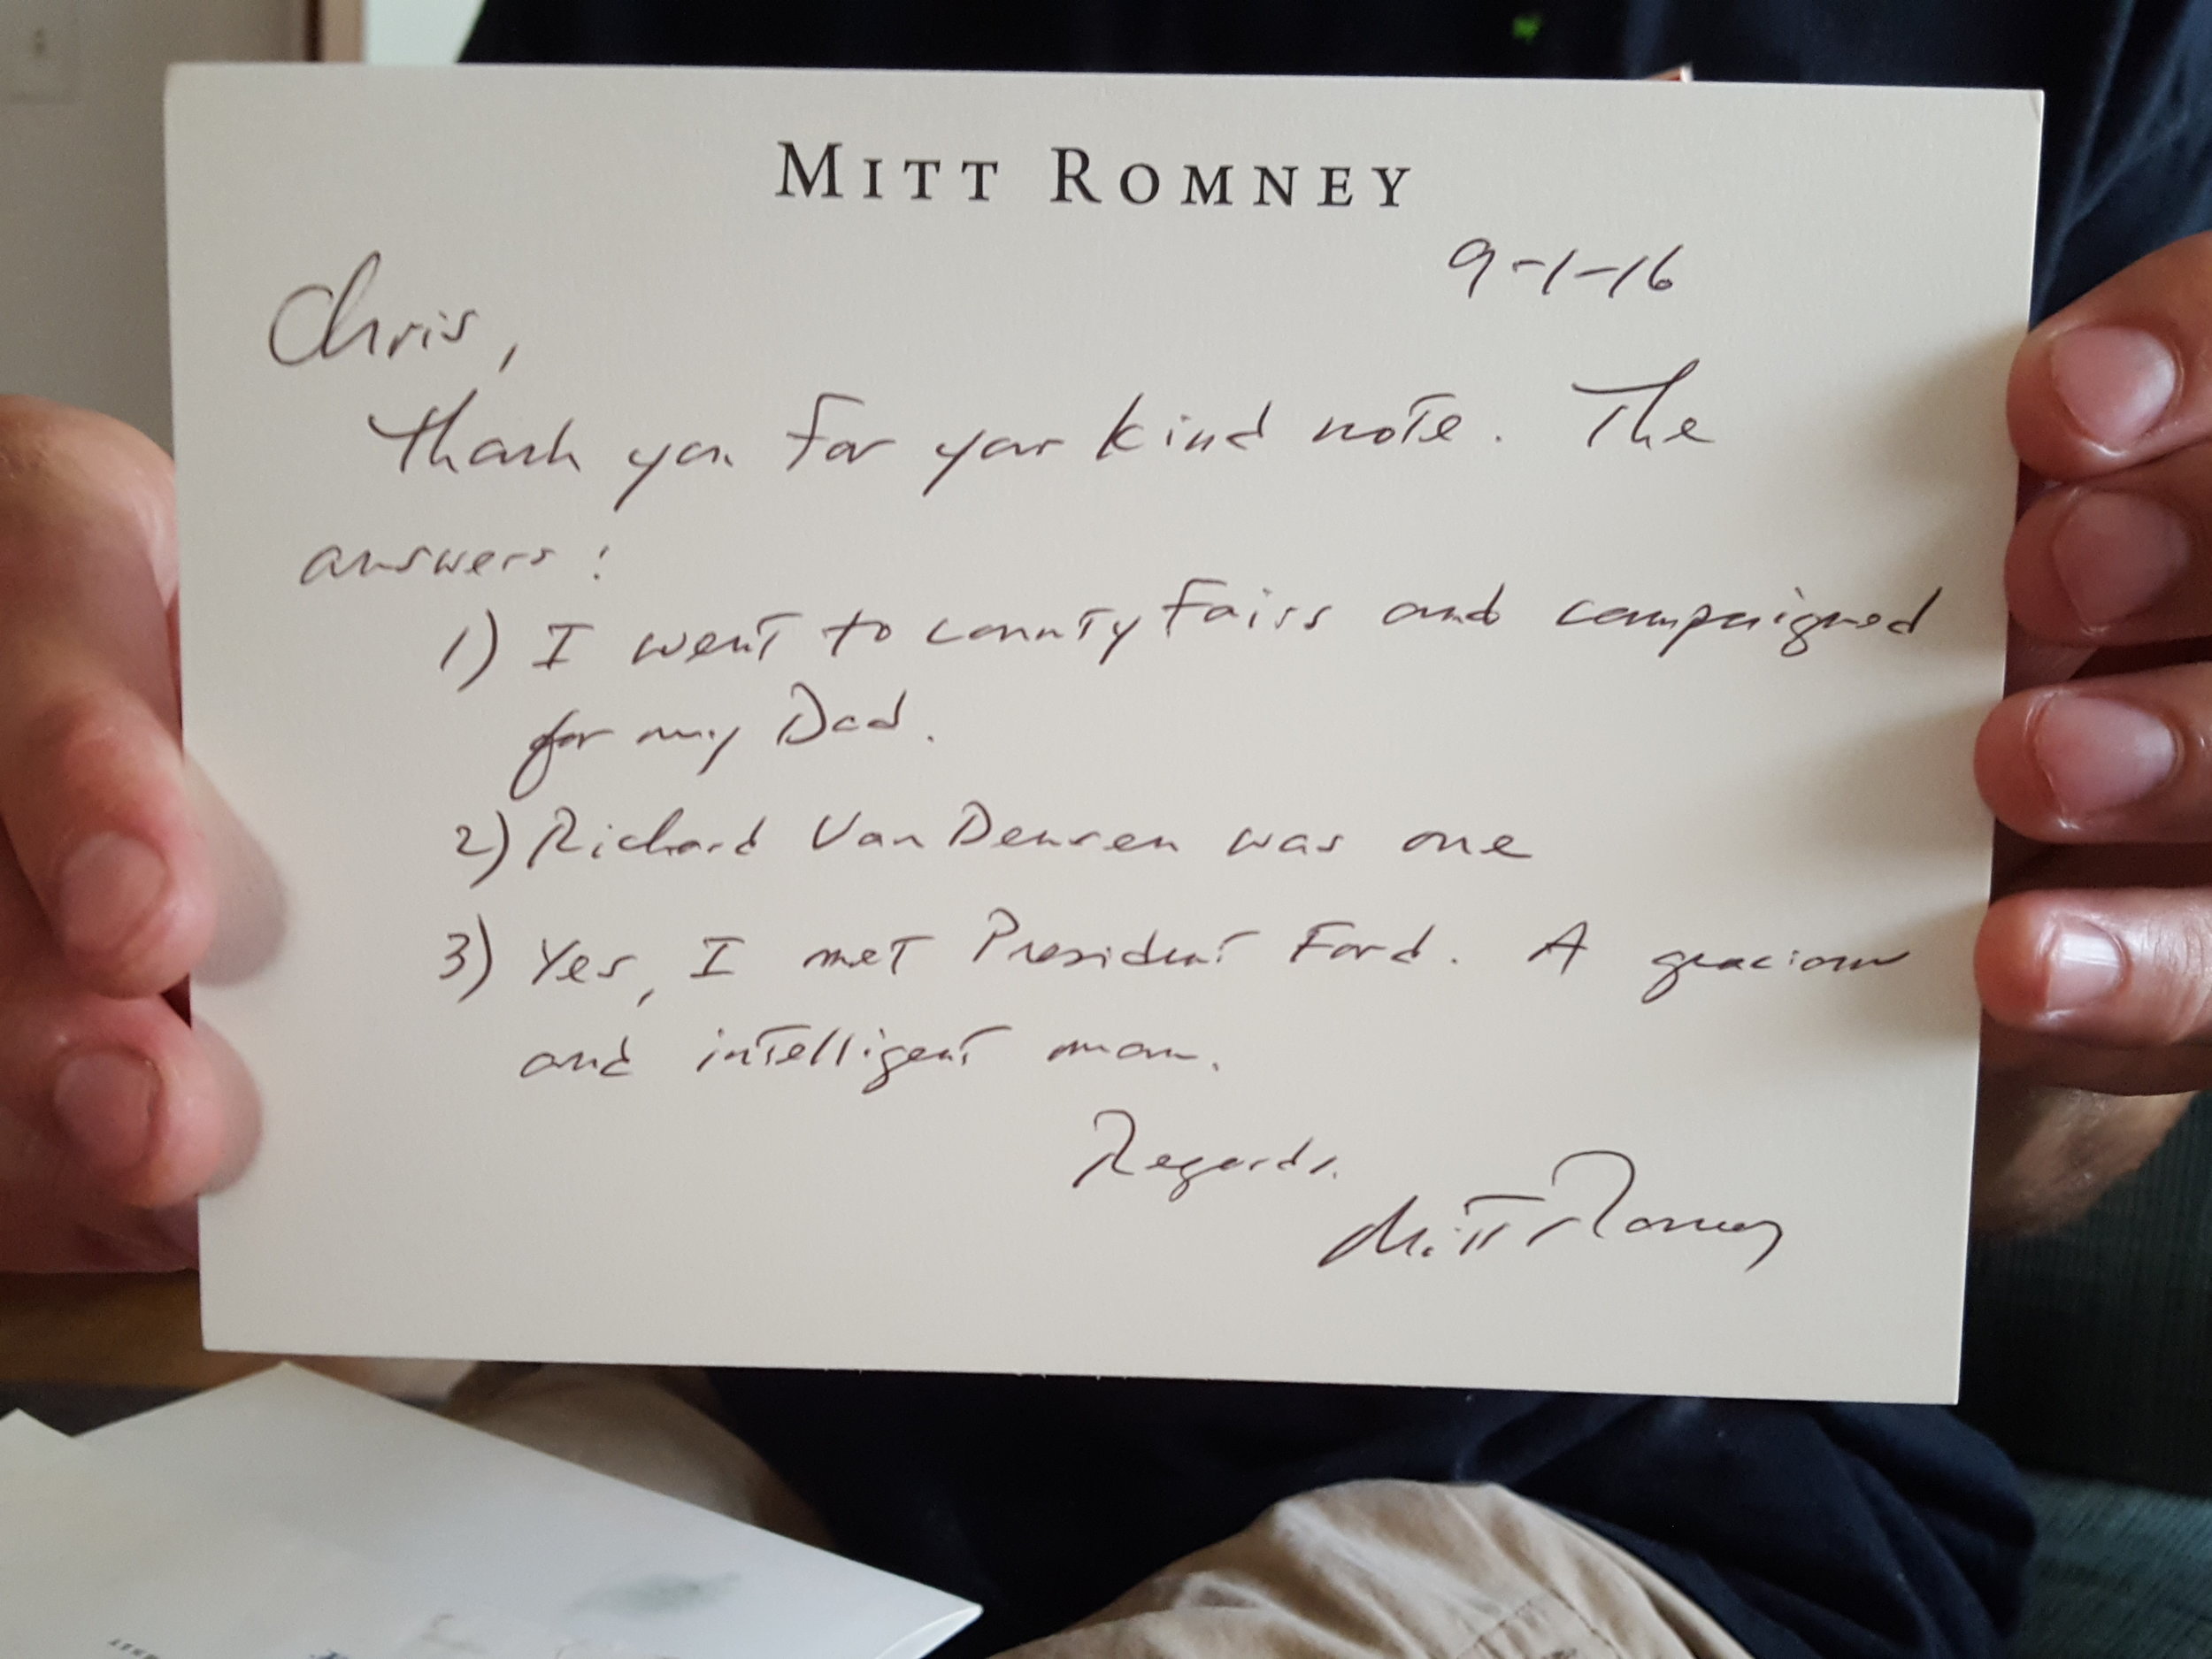 MITT ROMNEY
9-1-16
Chris,
Thank you for your kind note. The
answers:
1) I went to county fairs and campaigned
for my Dad.
2) Richard Van Deusen was one
3) Yes, I met President Ford. A gracious
and intelligent man.
Regards,
Mitt Romney